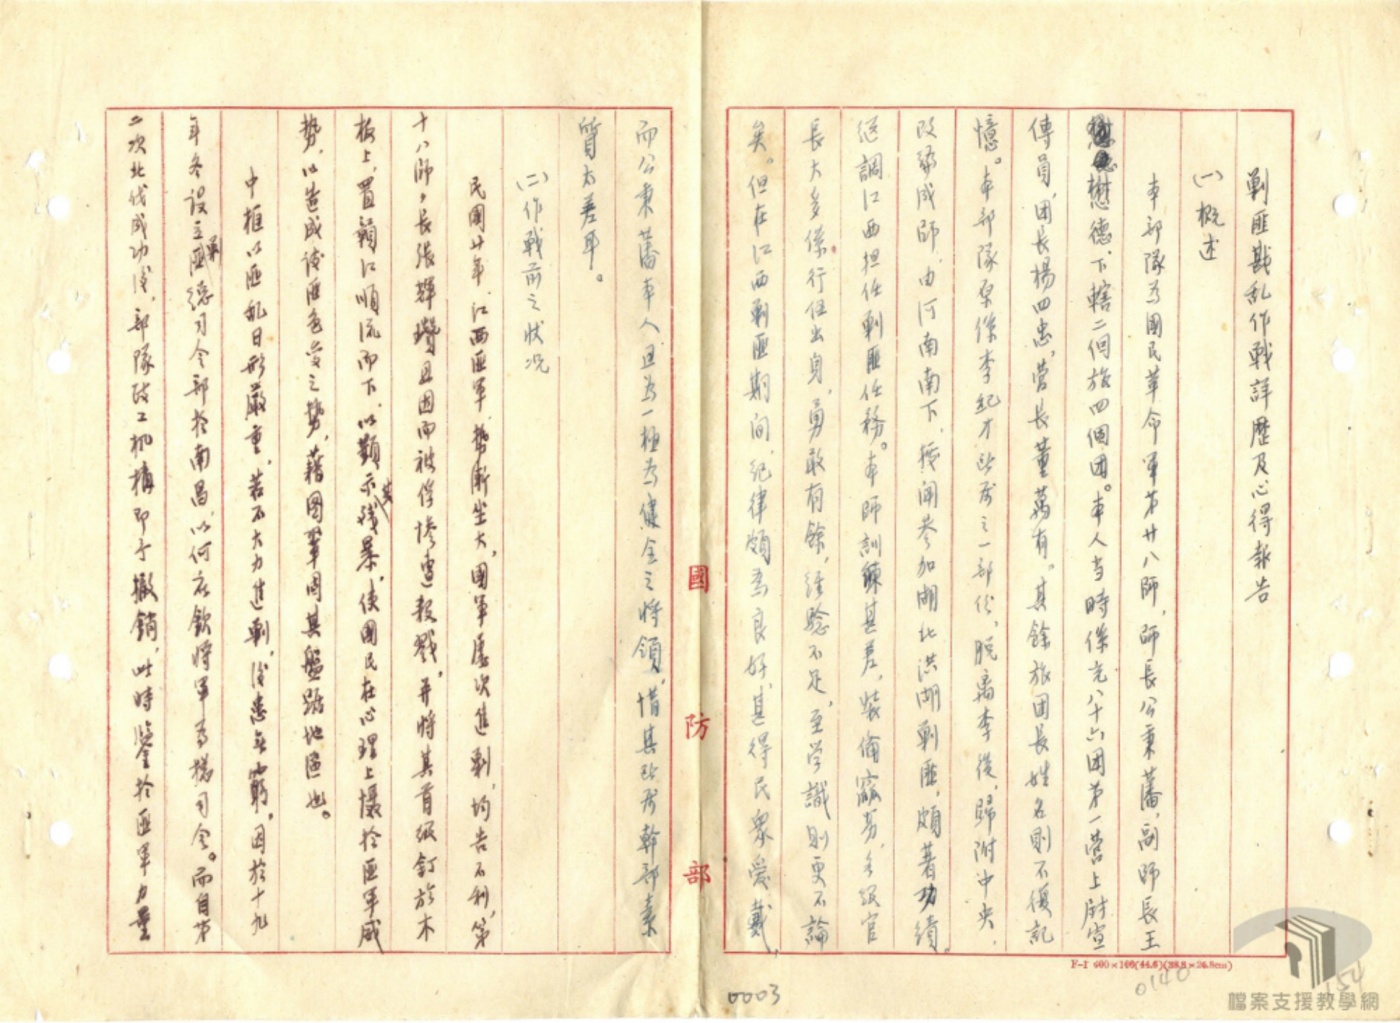 剿匪戡乱作戰詳歷及心得報告
(一)概述
本部隊為國民革命軍第廿八師,師長公秉藩,副師長王
懋德下轄二個旅四個团。本人当時係充八十六团第一营上尉宣
傳員,团長楊四忠,营長董萬有。其餘旅团長姓名則不復記
憶。本部隊原係李紀才所部之一部份,脫离李後,歸附中央,
改編成師,由河南南下,援闻參加湖北洪湖剿匪,頗著功績。
經調江西担任剿匪任務。本師訓練甚差,裝備窳劣,各級官
長大多係行伍出身,勇敢有餘,經驗不足,至学識則更不論
矣。但在江西剿匪期间,紀律頗為良好,甚得民眾愛戴,
而公秉藩本人且為一極為健全之將領,惜其所部幹部素
質太差耳。
(二)作戰前之狀况
民國廿年,江西匪軍,勢漸坐大,國軍屡次進剿,均告不利,第
十八師師長張輝瓚且因而被俘慘遭殺戮,并將其首級釘於木
板上,置贛江順流而下,以顯示其残暴,使國民在心理上懾於匪軍威
势,以造成談匪色变之势,藉圖鞏固其盤踞地區也。
中樞以匪乱日形嚴重,若不大力進剿,後患無窮,因於十九
年冬設立剿匪總司令部於南昌,以何应欽將軍為總司令。而自第
二次北伐成功後,部隊政工机構即予撤銷,此時鑒於匪軍力量
國防部
F-1 400×100(44.6)(38.8×26.8cm)
0003
0140
154
檔案支援教學網